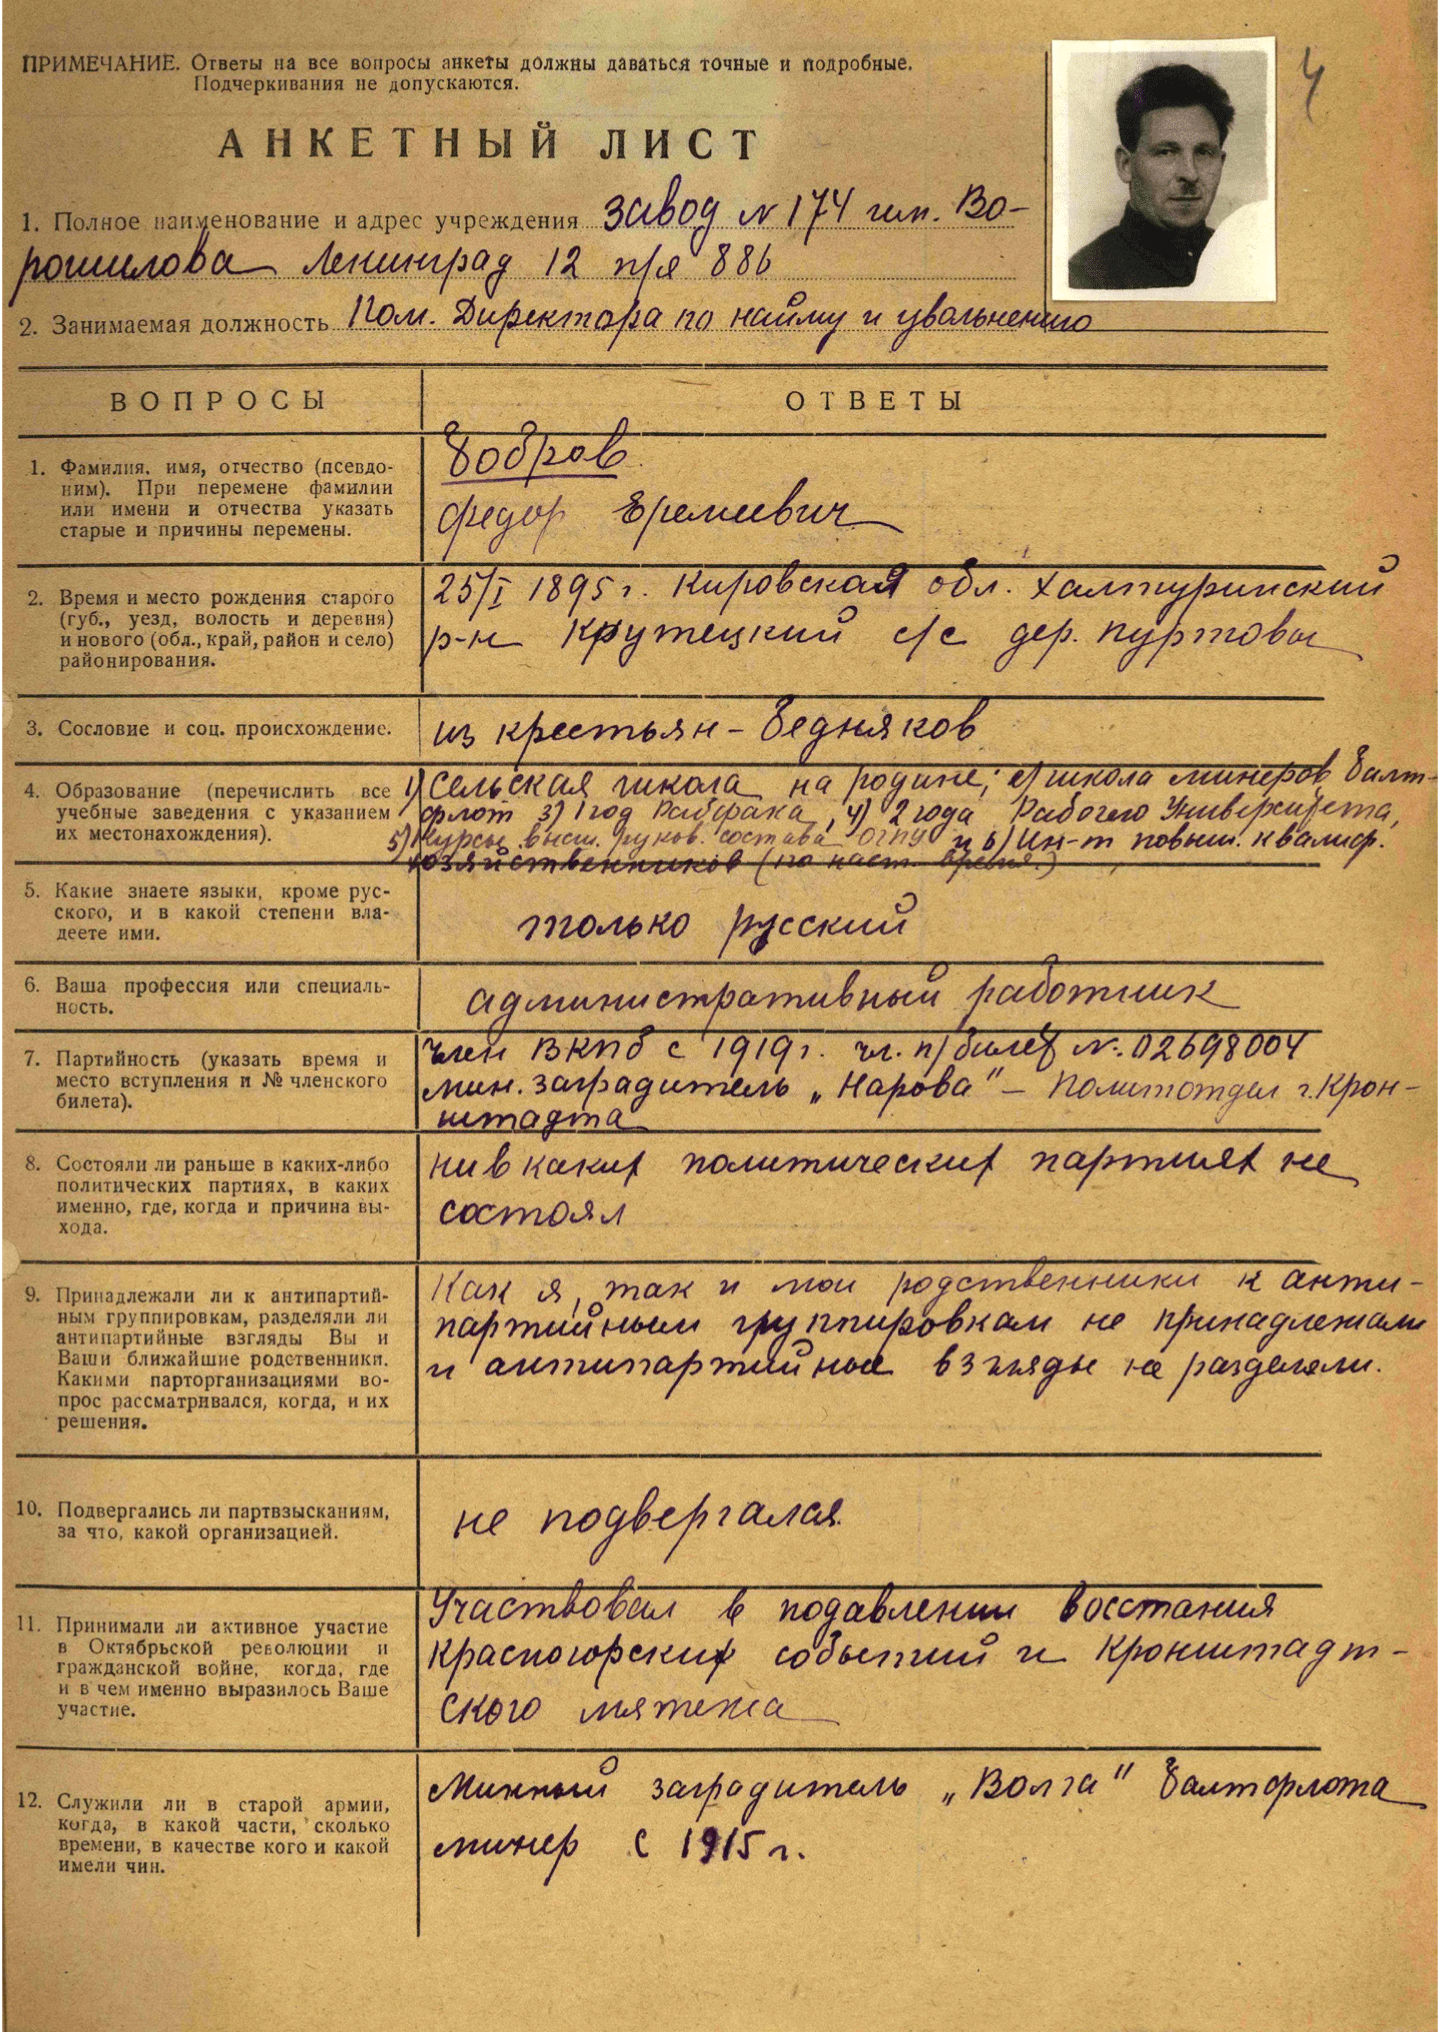 4
ПРИМЕЧАНИЕ. Ответы на все вопросы анкеты должны даваться точные и подробные.
Подчеркивания не допускаются.
АНКЕТНЫЙ ЛИСТ
1. Полное наименование и адрес учреждения завод N 174 им. Во-
рошилова Ленинград 12 п/я 886
2. Занимаемая должность Пом. Директора по найму и увольнению
ВОПРОСЫ
ОТВЕТЫ
1. Фамилия, имя, отчество (псевдо-
ним). При перемене фамилии
или имени и отчества указать
старые и причины перемены.
Бобров
Федор Еремеевич
2. Время и место рождения старого
(губ., уезд, волость и деревня)
и нового (обл., край, район и село)
районирования.
25/I 1895 г. Кировская обл. Халтуринский
р-н Крутецкий с/с дер. Пуртовы
3. Сословие и соц. происхождение.
из крестьян-бедняков
4. Образование (перечислить все
учебные заведения с указанием
их местонахождения).
1) Сельская школа на родине; 2) школа минеров Балт-
флот 3) 1 год Рабфака, 4) 2 года Рабочего Университета,
5) Курсы высш. руков. состава ОГПУ и 6) Ин-т повыш. квалиф.
хозяйственников (по наст. время.)
5. Какие знаете языки, кроме рус-
ского, и в какой степени вла-
деете ими.
только русский
6. Ваша профессия или специаль-
ность.
административный работник
7. Партийность (указать время и
место вступления и № членского
билета).
член ВКПб с 1919 г. чл. п/билет N: 02698004
мин. заградитель „Нарова" - Политотдел г. Крон-
штадта
8. Состояли ли раньше в каких-либо
политических партиях, в каких
именно, где, когда и причина вы-
хода.
ни в каких политических партиях не
состоял
9. Принадлежали ли к антипартий-
ным группировкам, разделяли ли
антипартийные взгляды Вы и
Ваши ближайшие родственники.
Какими парторганизациями во-
прос рассматривался, когда, и их
решения.
Как я, так и мои родственники к анти-
партийным группировкам не принадлежали
и антипартийные взгляды не разделяли.
10. Подвергались ли партвзысканиям,
за что, какой организацией.
не подвергался
11. Принимали ли активное участие
в Октябрьской революции и
гражданской войне, когда, где
и в чем именно выразилось Ваше
участие.
Участвовал в подавлении восстания
Красногорских событий и Кронштадт-
ского мятежа
12. Служили ли в старой армии,
когда, в какой части, сколько
времени, в качестве кого и какой
имели чин.
Минный заградитель „Волга" Балтфлота
минер с 1915 г.